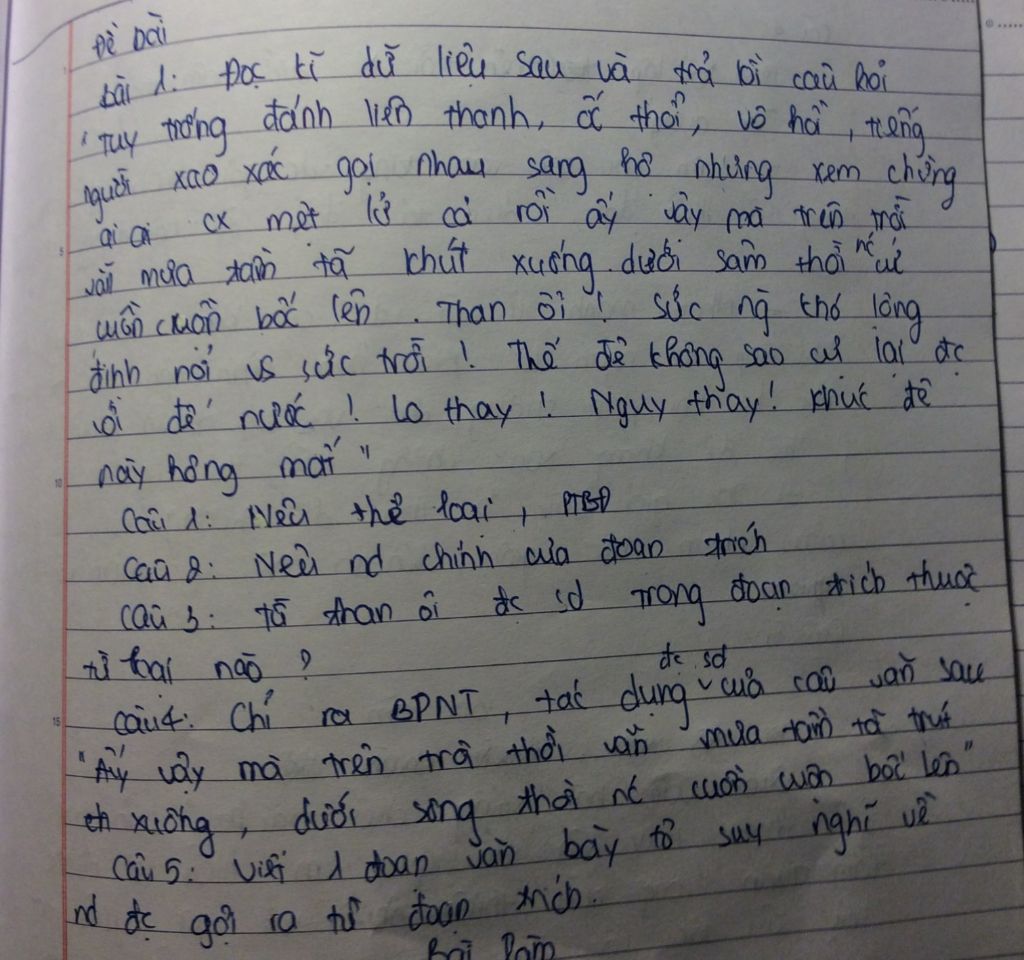 Đề bài
Bài 1: Đọc kĩ dữ liệu sau và trả lời câu hỏi
"Tuy trống đánh liên thanh, ốc thổi, vô hồi, tiếng
người xao xác gọi nhau sang hô nhưng xem chừng
ai ai cx mệt lử cả rồi ấy vậy mà trên trời
vẫn mưa tầm tã khút xuống. dưới sầm thời nc cứ
cuồn cuộn bốc lên. Than ôi! sức ng khó lòng
định nói vs sức trời! Thế đê không sao cự lại đc
với đế nước! lo thay! Nguy thay! khúc đê
này hỏng mất"
Câu 1: Nêu thể loại, PTBĐ
Câu 2: Nêu nd chính của đoạn trích
Câu 3: từ than ôi đc sd trong đoạn trích thuộc
từ loại nào?
Câu 4: Chỉ ra BPNT, tác dụng đc sd của câu văn sau
"Ấy vậy mà trên trời thời vẫn mưa tầm tã trút
xuống, dưới sông thời nc cuồn cuộn bốc lên"
Câu 5: Viết 1 đoạn văn bày tỏ suy nghĩ về
nd đc gợi ra từ đoạn trích.
Bài làm